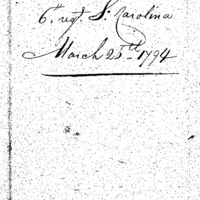 6th regt. S. Carolina
March 25th 1794